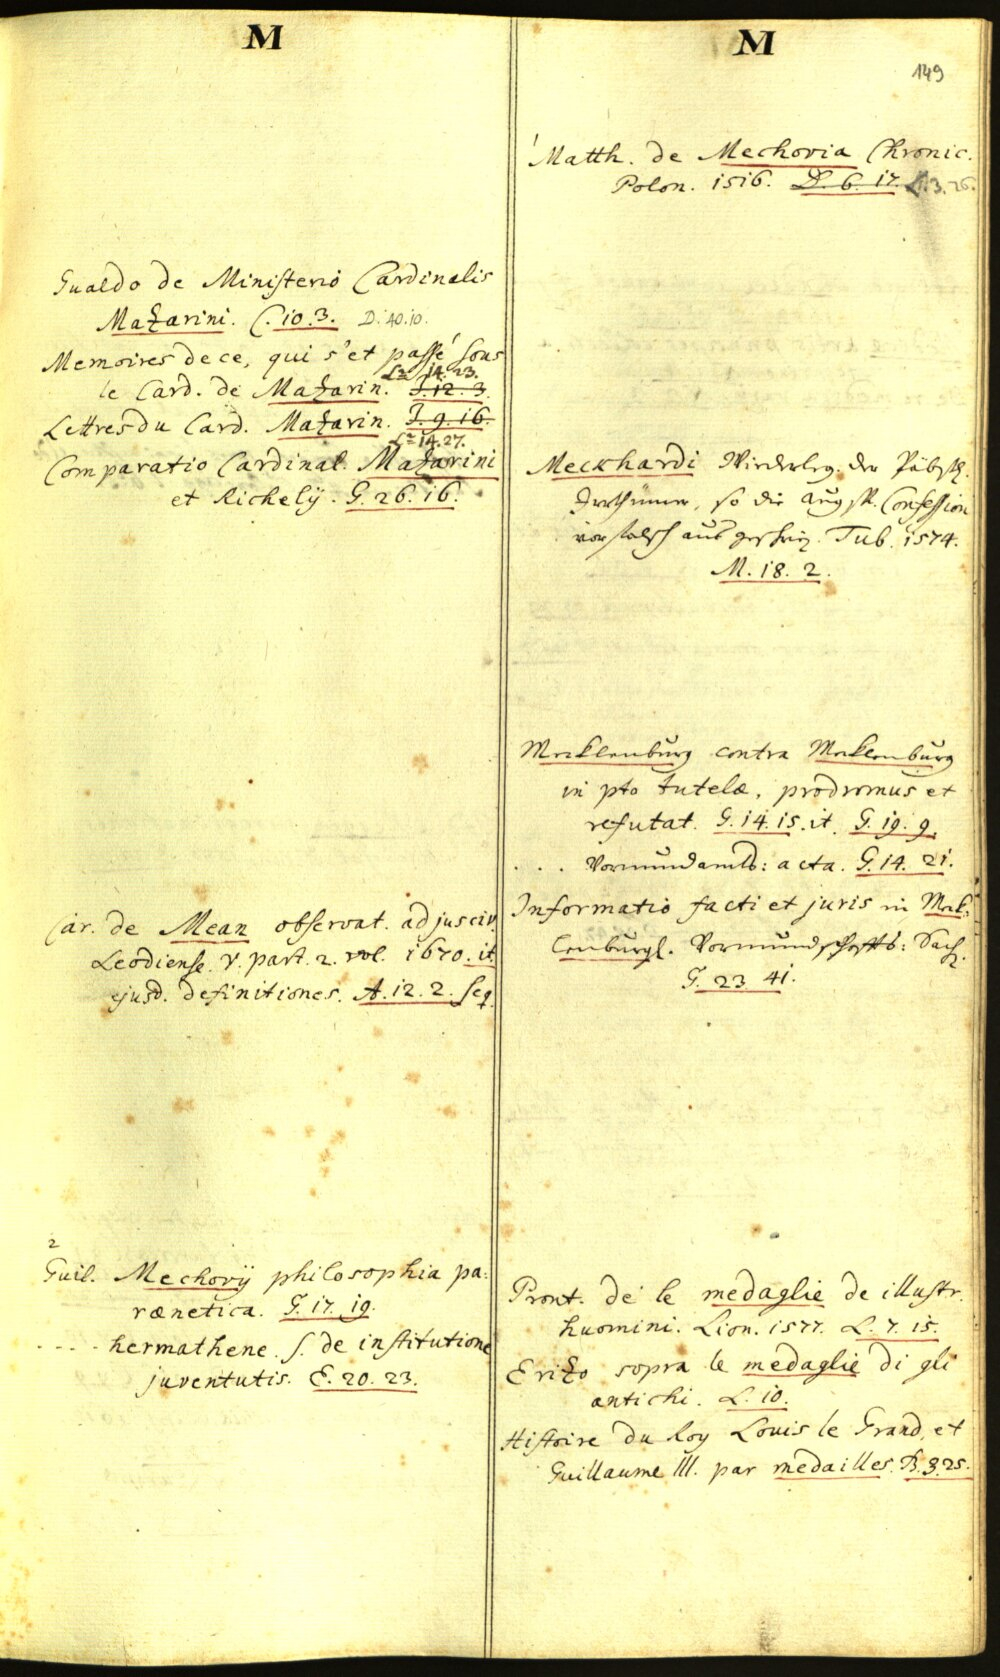 M
Gualdo de Ministerio Cardinalis
Mazarini. C. 10. 3. D. 40. 10.
Memoires de ce, qui s'et passé sous
L. 14. 23.
le Card. de Mazarin. J. 12. 3.
Lettres du Card. Mazarin. J. 9. 16.
L. 14. 27.
Comparatio Cardinal. Mazarini
et Richelÿ. G. 26. 16.
Car. de Mean observat. ad jus civ.
Leodiense. V. part. 2. vol. 1670. it.
ejusd. definitiones. A. 12. 2. seq.
2
Guil. Mechovÿ philosophia pa:
rænetica. G. 17. 19.
. . . . hermathene. s. de institutione
juventutis. E. 20. 23.
M
149
1
Matth. de Mechovia Chronic.
Polon. 1516. D. 6. 17. L. 3. 26.
Meckhardi Widerleg. der Päbstl.
Irrthümer, so die Augsp. Confession
vor falsch aus Tub. 1574.
M. 18. 2.
Mecklenburg contra Meklenburg
in pto tutelæ, prodromus et
refutat. G. 14. 15. it. G. 19. 9.
. . . Vormundamts: acta. G. 14. 21.
Informatio facti et juris in Mek:
lenburgl. Vormundschaffts: Sach.
G. 23. 41.
Pront. de le medaglie de illustr.
huomini. Lion. 1577. L. 7. 15.
Erizo sopra le medaglie di gli
antichi. L. 10.
Histoire du Roy Louis le Grand, et
Guillaume III. par medailles. B. 3. 25.